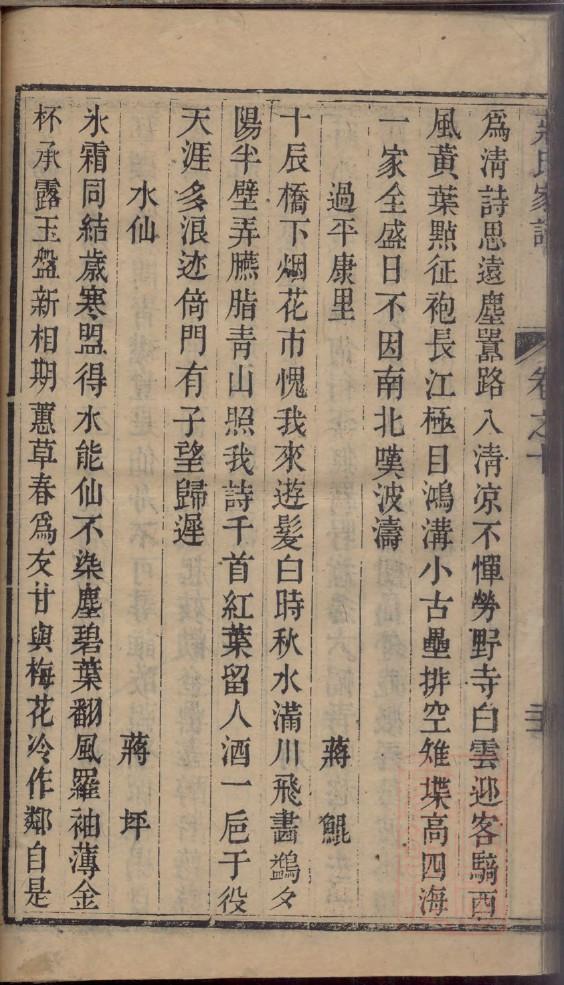 爲清詩思遠塵囂路入清凉不憚勞野寺白雲迎客騎西
風黃葉㸃征袍長江極目鴻溝小古壘排空雉堞高四海
一家全盛日不因南北嘆波濤
過平康里　蔣鯤
十辰橋下烟花市愧我來遊髮白時秋水滿川飛畵鷁夕
陽半壁弄臙脂靑山照我詩千首紅葉留人酒一巵于役
天涯多浪迹倚門有子望歸遲
水仙　蔣坪
氷霜同結歲寒盟得水能仙不染塵碧葉翻風羅袖薄金
杯承露玉盤新相期蕙草春爲友甘與梅花冷作鄰自是
氏家
卷之十